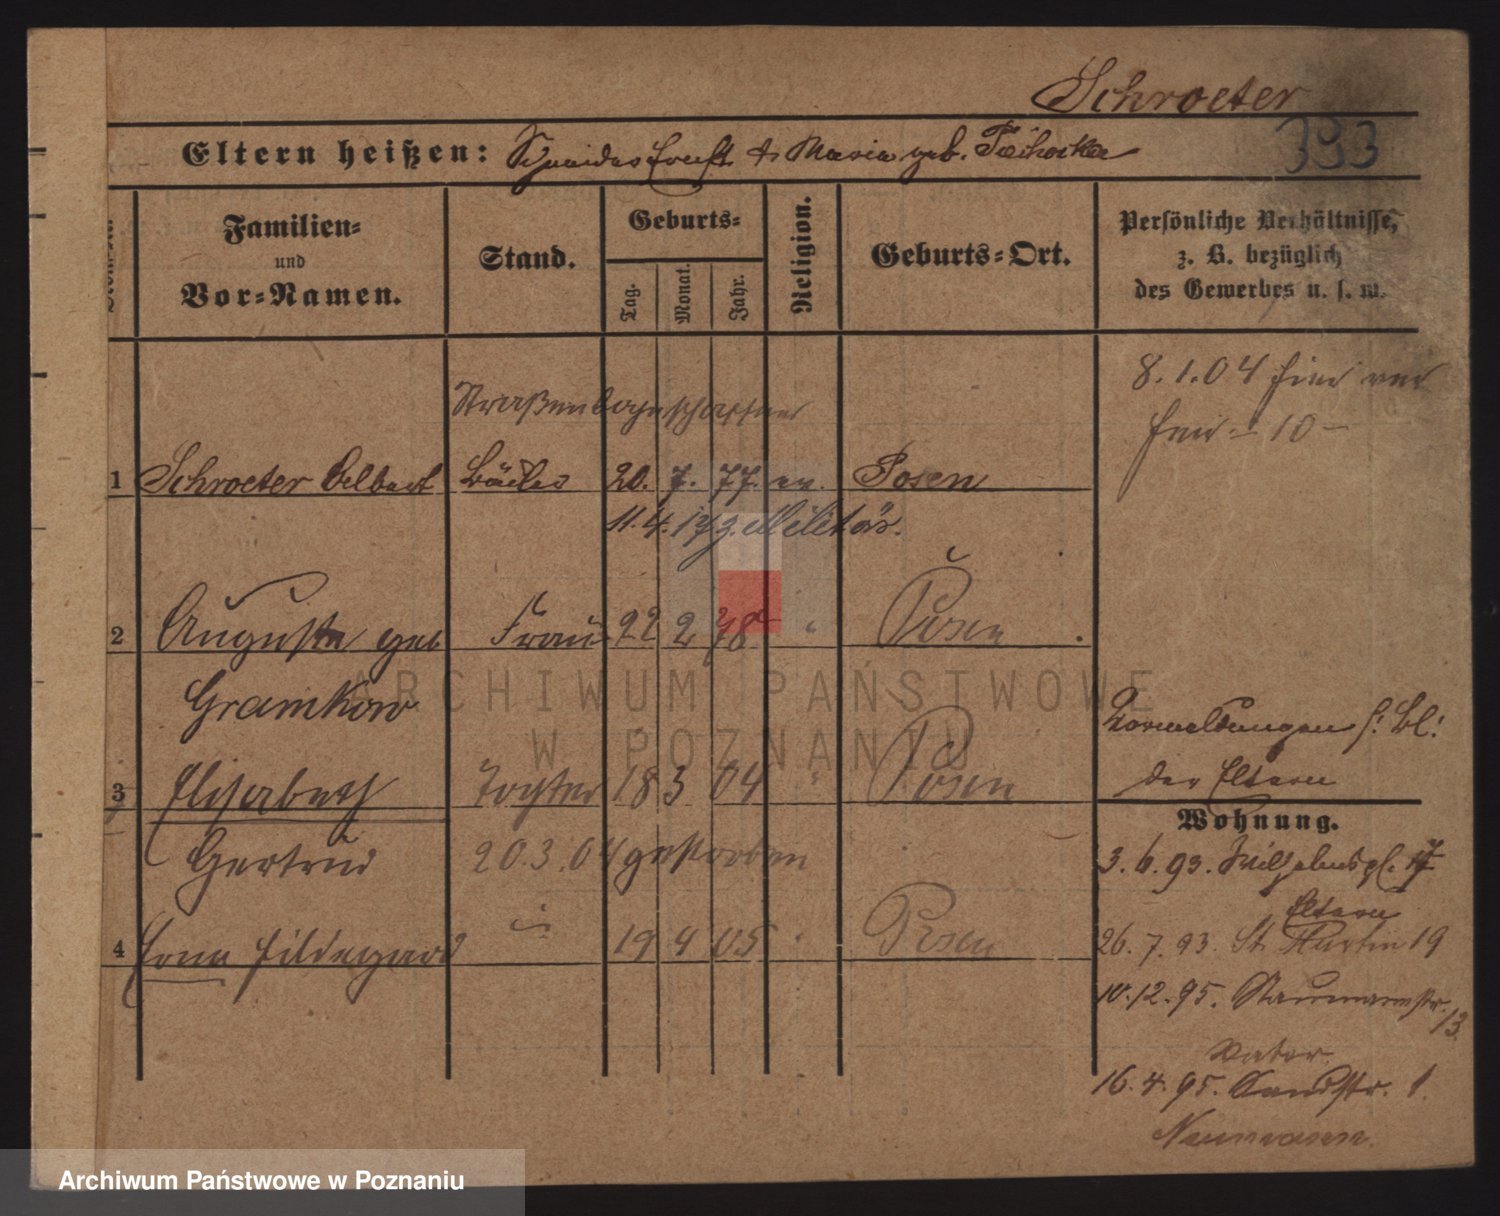 Schroeter
393
Eltern heißen: Schneider Ernst & Maria geb.
Familien= und Vor=Namen.
Stand.
Geburts=
Tag. Monat. Jahr.
Religion.
Geburts=Ort.
Persönliche Verhältnisse,
z. B. bezüglich
des Gewerbes u. s. w.
8.1.04
10
Straßenbahnschaffner
1 Schroeter Albert Bäcker 20. 7. 77. ev. Posen
11.4.17 z. Militär.
2 Auguste geb Frau 22 2 78 " Posen
Gramkow
Vormeldungen s. Bl.
der Eltern
3 Elisabeth Tochter 18 3 04 " Posen
Gertrud 20.3.04 gestorben
4 Erna Hildegard 19 4 05 " Posen
Wohnung.
3.6.93. Wilhelmspl. 17
Eltern
26.7.93. St Martin 19
10.12.95. Naumannstr. 13
Vater
16.4.95. Sandstr. 1.
ARCHIWUM PAŃSTWOWE
W POZNANIU
Archiwum Państwowe w Poznaniu